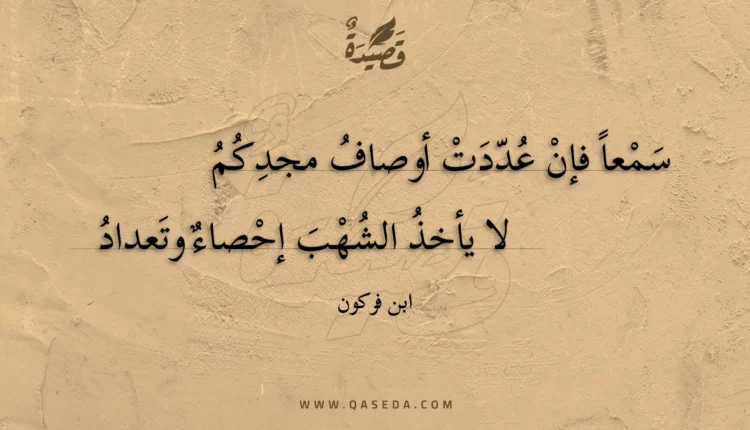 قَصِيدَةٌ
سَمْعاً فإنْ عُدّدَتْ أوصافُ مجدِكُمُ
لا يأخذُ الشُهْبَ إحْصاءٌ وتَعدادُ
ابن فركون
WWW.QASEDA.COM